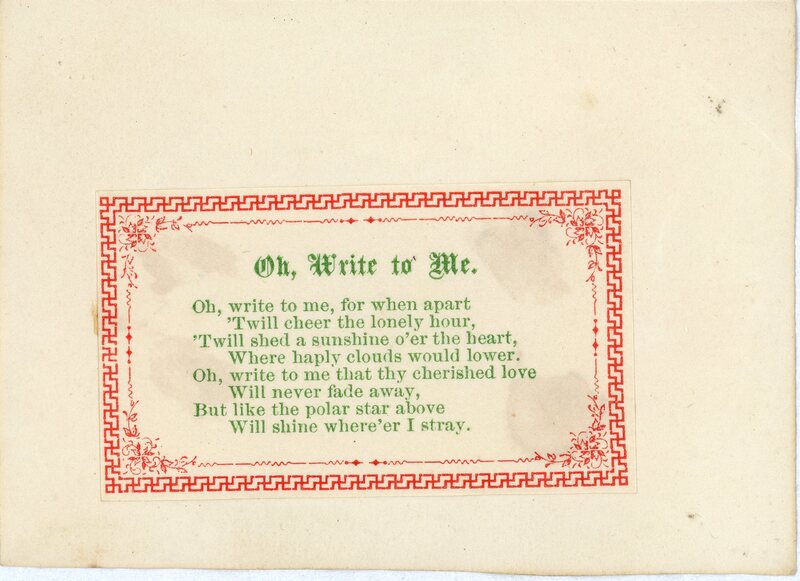 Oh, Write to Me.
Oh, write to me, for when apart
'Twill cheer the lonely hour,
'Twill shed a sunshine o'er the heart,
Where haply clouds would lower.
Oh, write to me that thy cherished love
Will never fade away,
But like the polar star above
Will shine where'er I stray.